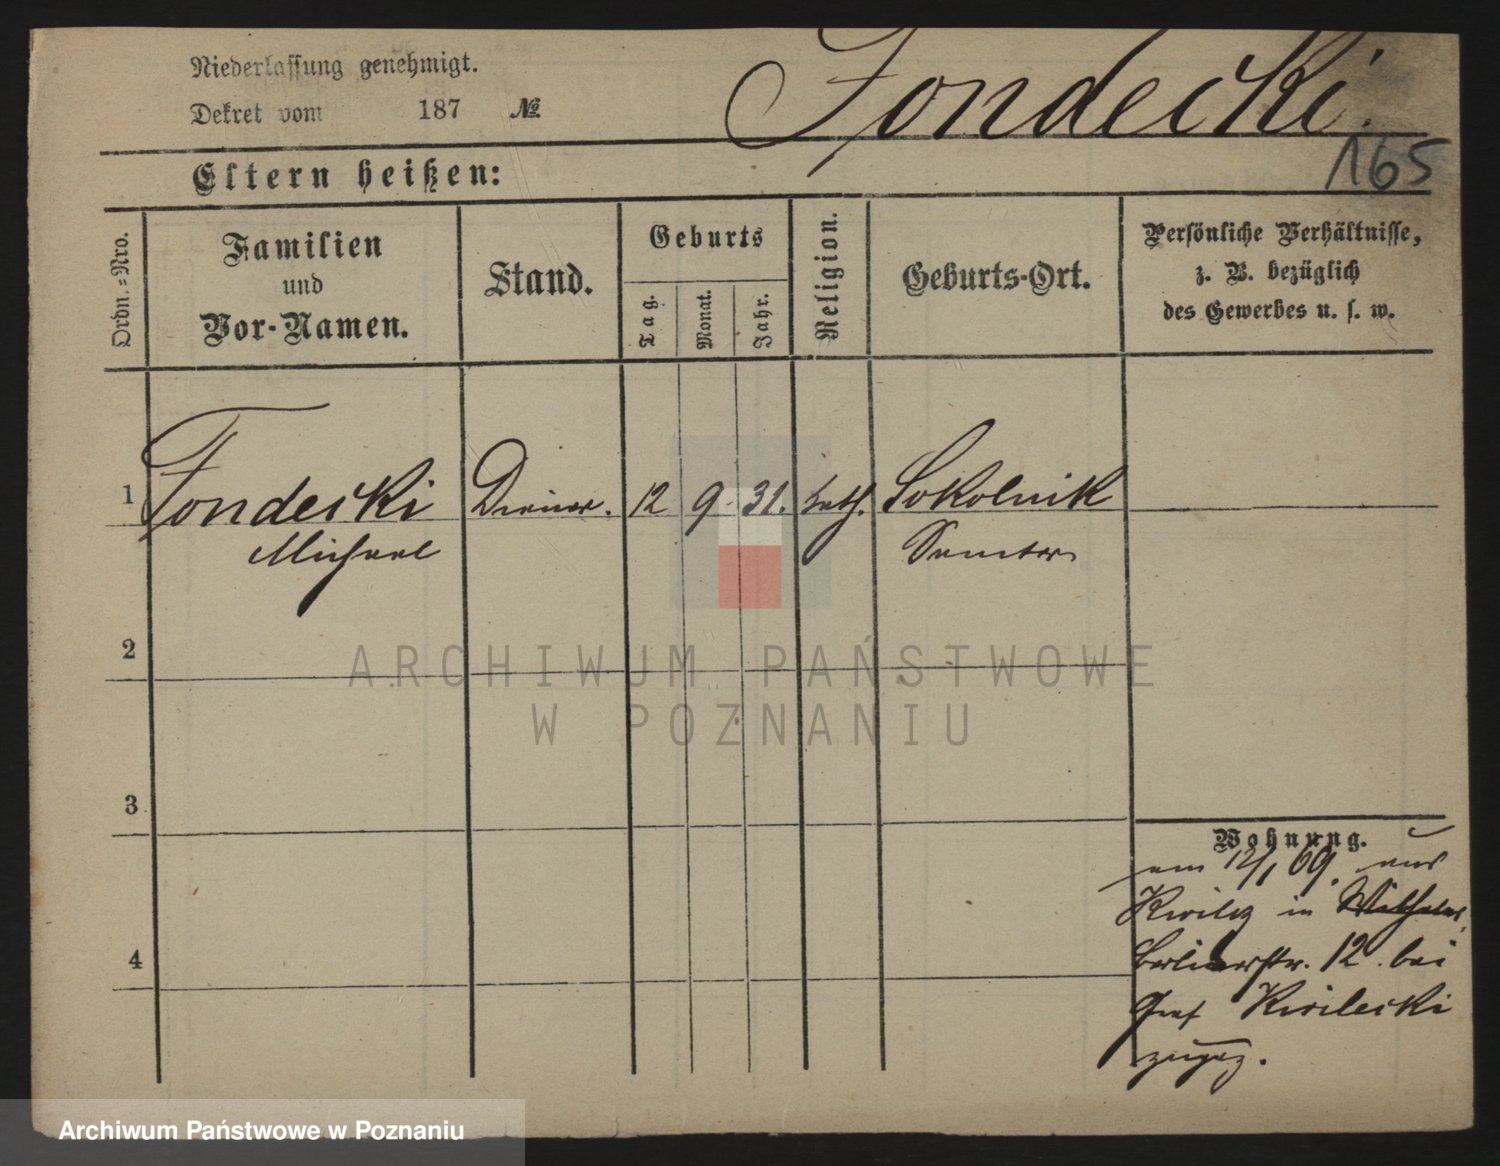 Niederlassung genehmigt.
Dekret vom 187 №
Fondecki.
165
Eltern heißen:
Ordn.=Nro.
Familien
und
Vor-Namen.
Stand.
Geburts
Tag.
Monat.
Jahr.
Religion.
Geburts-Ort.
Persönliche Verhältnisse,
z. B. bezüglich
des Gewerbes u. s. w.
1 Fondecki Diener. 12 9. 31. kath. Sokolnik
Michael Samter
2
3
4
Wohnung.
am 12/1 69. aus
Kwilcz in
Berlinerstr. 12. bei
Graf Kwilecki
zugez.
ARCHIWUM PAŃSTWOWE
W POZNANIU
Archiwum Państwowe w Poznaniu